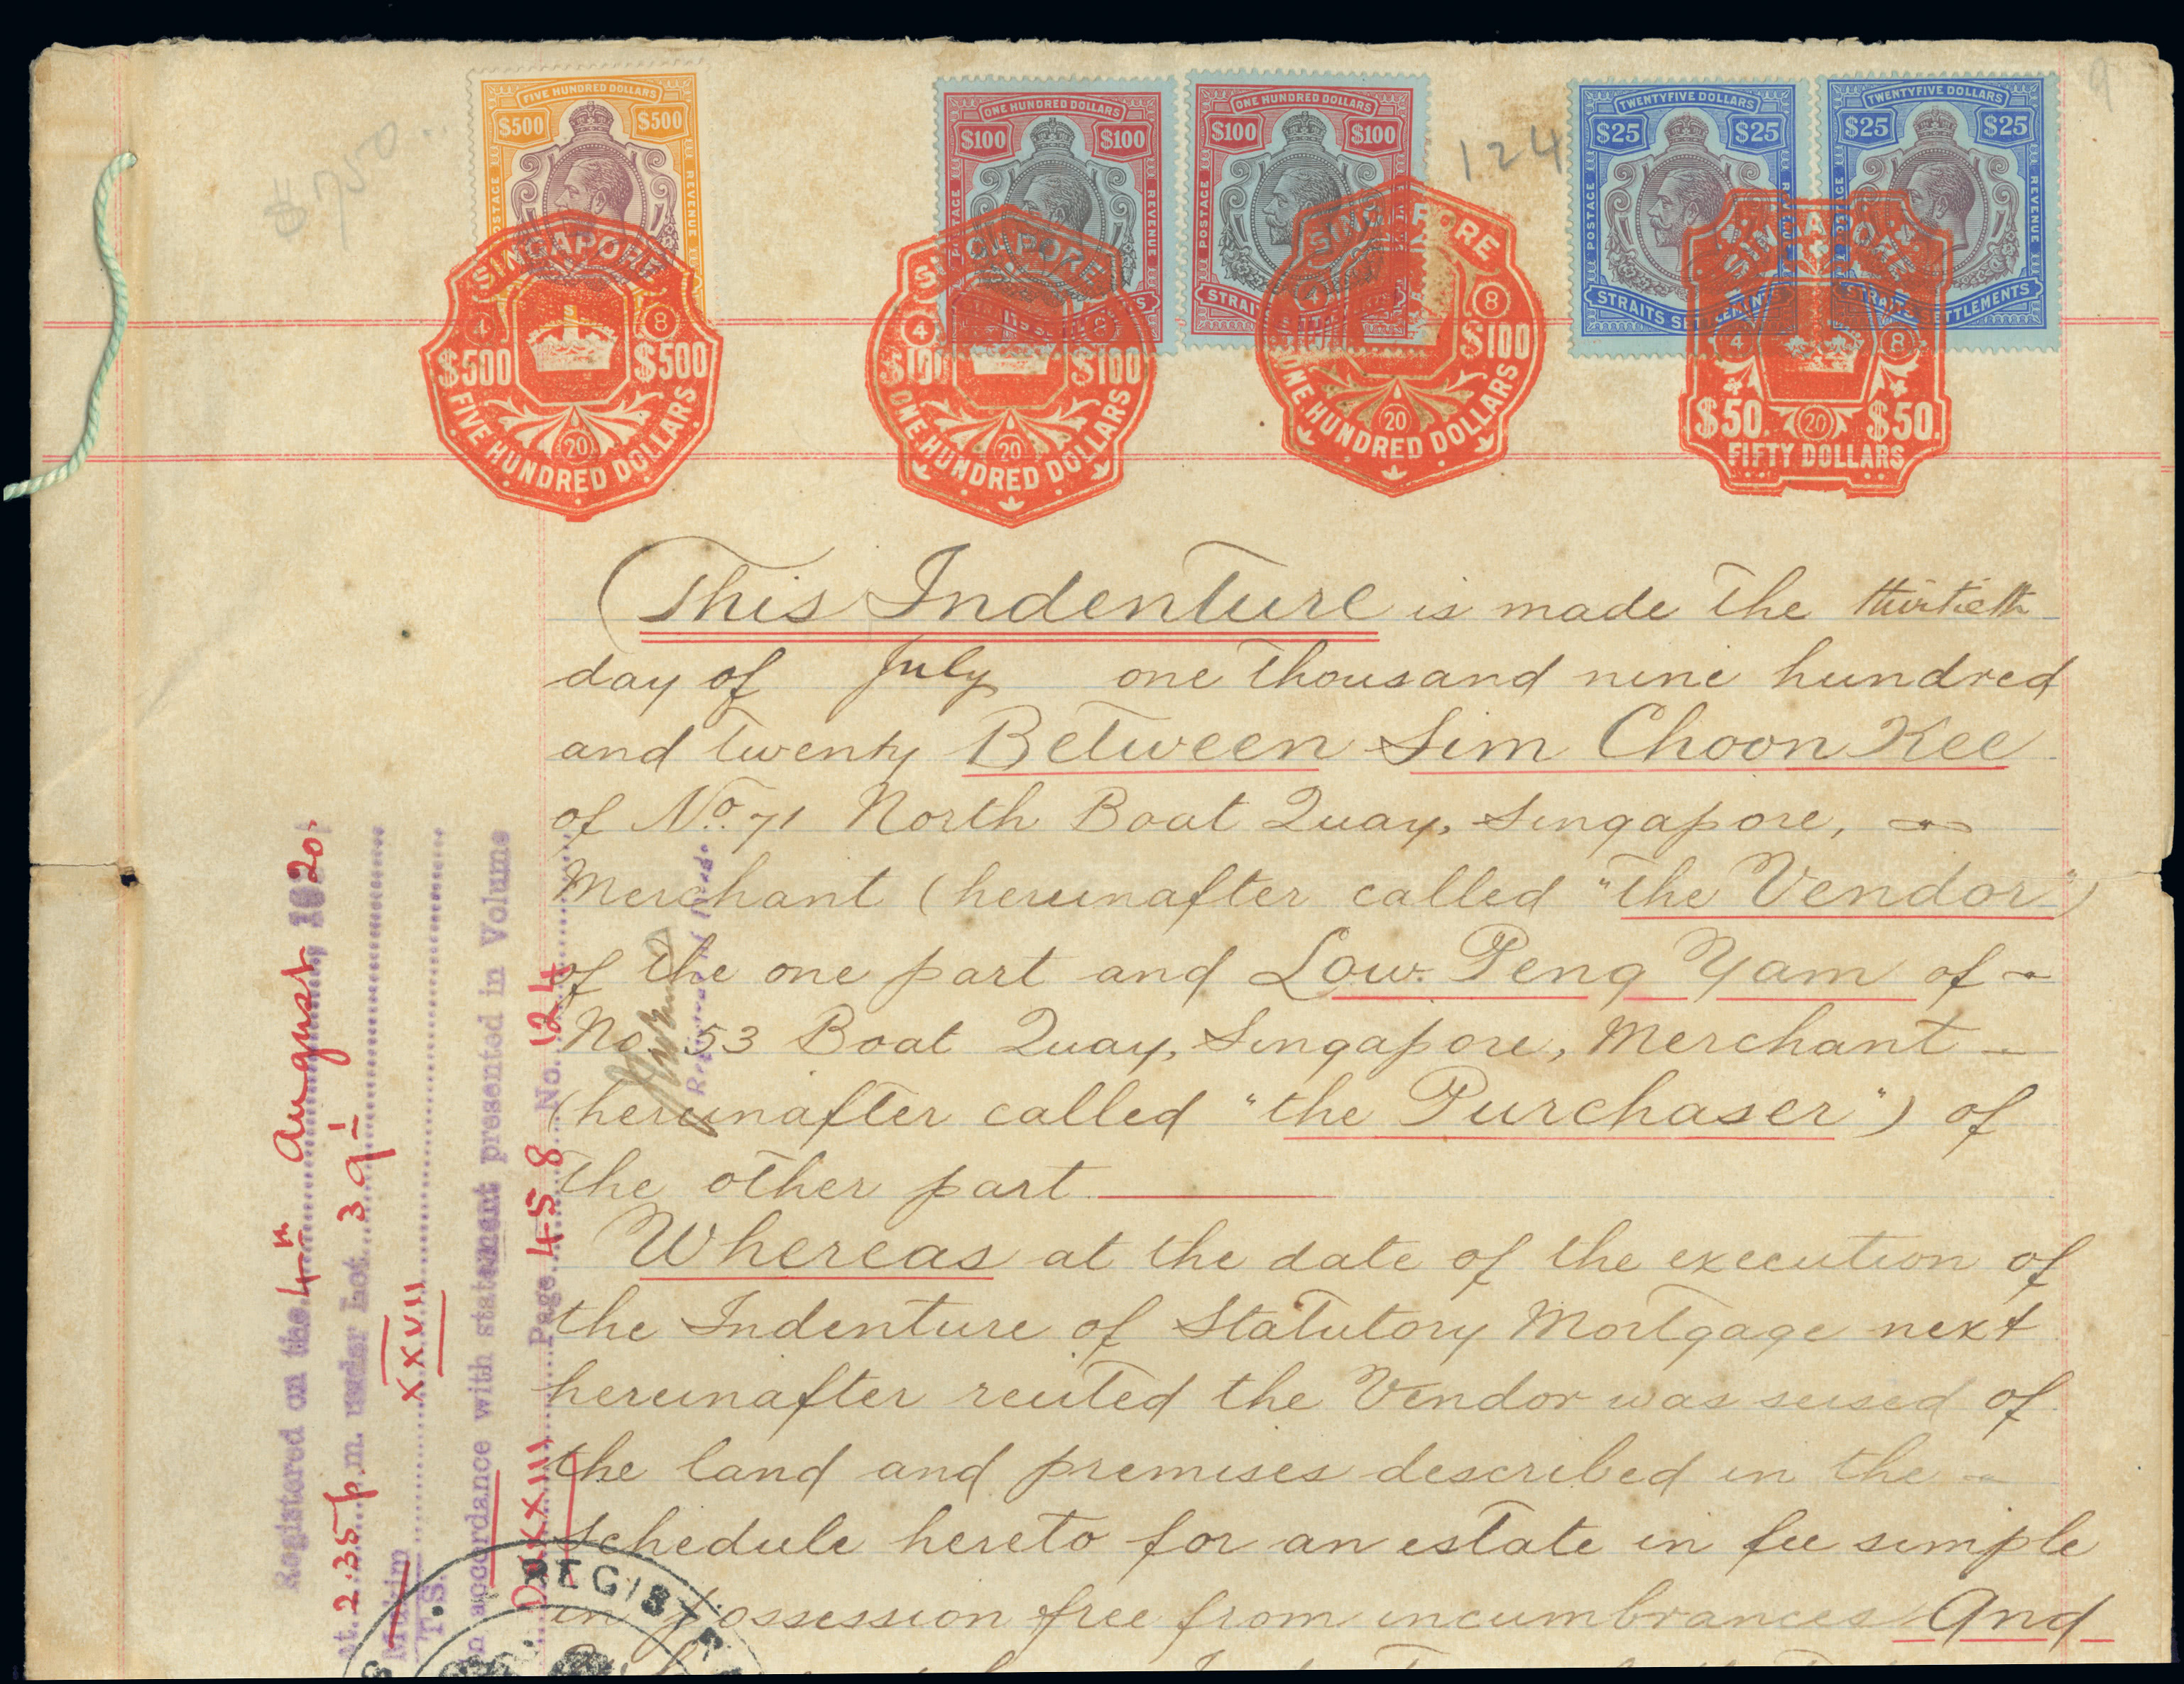 $750
FIVE HUNDRED DOLLARS
$500 $500
POSTAGE REVENUE
ONE HUNDRED DOLLARS
$100 $100
POSTAGE REVENUE
ONE HUNDRED DOLLARS
$100 $100
POSTAGE
STRAITS
124
TWENTYFIVE DOLLARS
$25 $25
POSTAGE REVENUE
STRAITS SETTLEMENTS
TWENTYFIVE DOLLARS
$25 $25
REVENUE
STRAITS SETTLEMENTS
9
SINGAPORE
4 8
$500 $500
20
FIVE HUNDRED DOLLARS
SINGAPORE
4 8
$100 $100
20
ONE HUNDRED DOLLARS
SINGAPORE
4 8
$100
20
ONE HUNDRED DOLLARS
SINGAPORE
4 8
$50. 20 $50.
FIFTY DOLLARS
This Indenture is made the thirtieth
day of July one thousand nine hundred
and twenty Between Sim Choon Kee
of No. 71 North Boat Quay, Singapore,
Merchant (hereinafter called "the Vendor")
of the one part and Low Peng Yam of
No 53 Boat Quay, Singapore, Merchant
(hereinafter called "the Purchaser") of
the other part.
Whereas at the date of the execution of
the Indenture of Statutory Mortgage next
hereinafter recited the Vendor was seised of
the land and premises described in the
Schedule hereto for an estate in fee simple
in possession free from incumbrances And
Registered on the 4th August, 1920,
at 2.35 p.m. under Lot 391
Mukim XXVII
T.S.
in accordance with statement presented in Volume
DXXXIII Page 458 No. 124
Registrar of Deeds
REGISTR